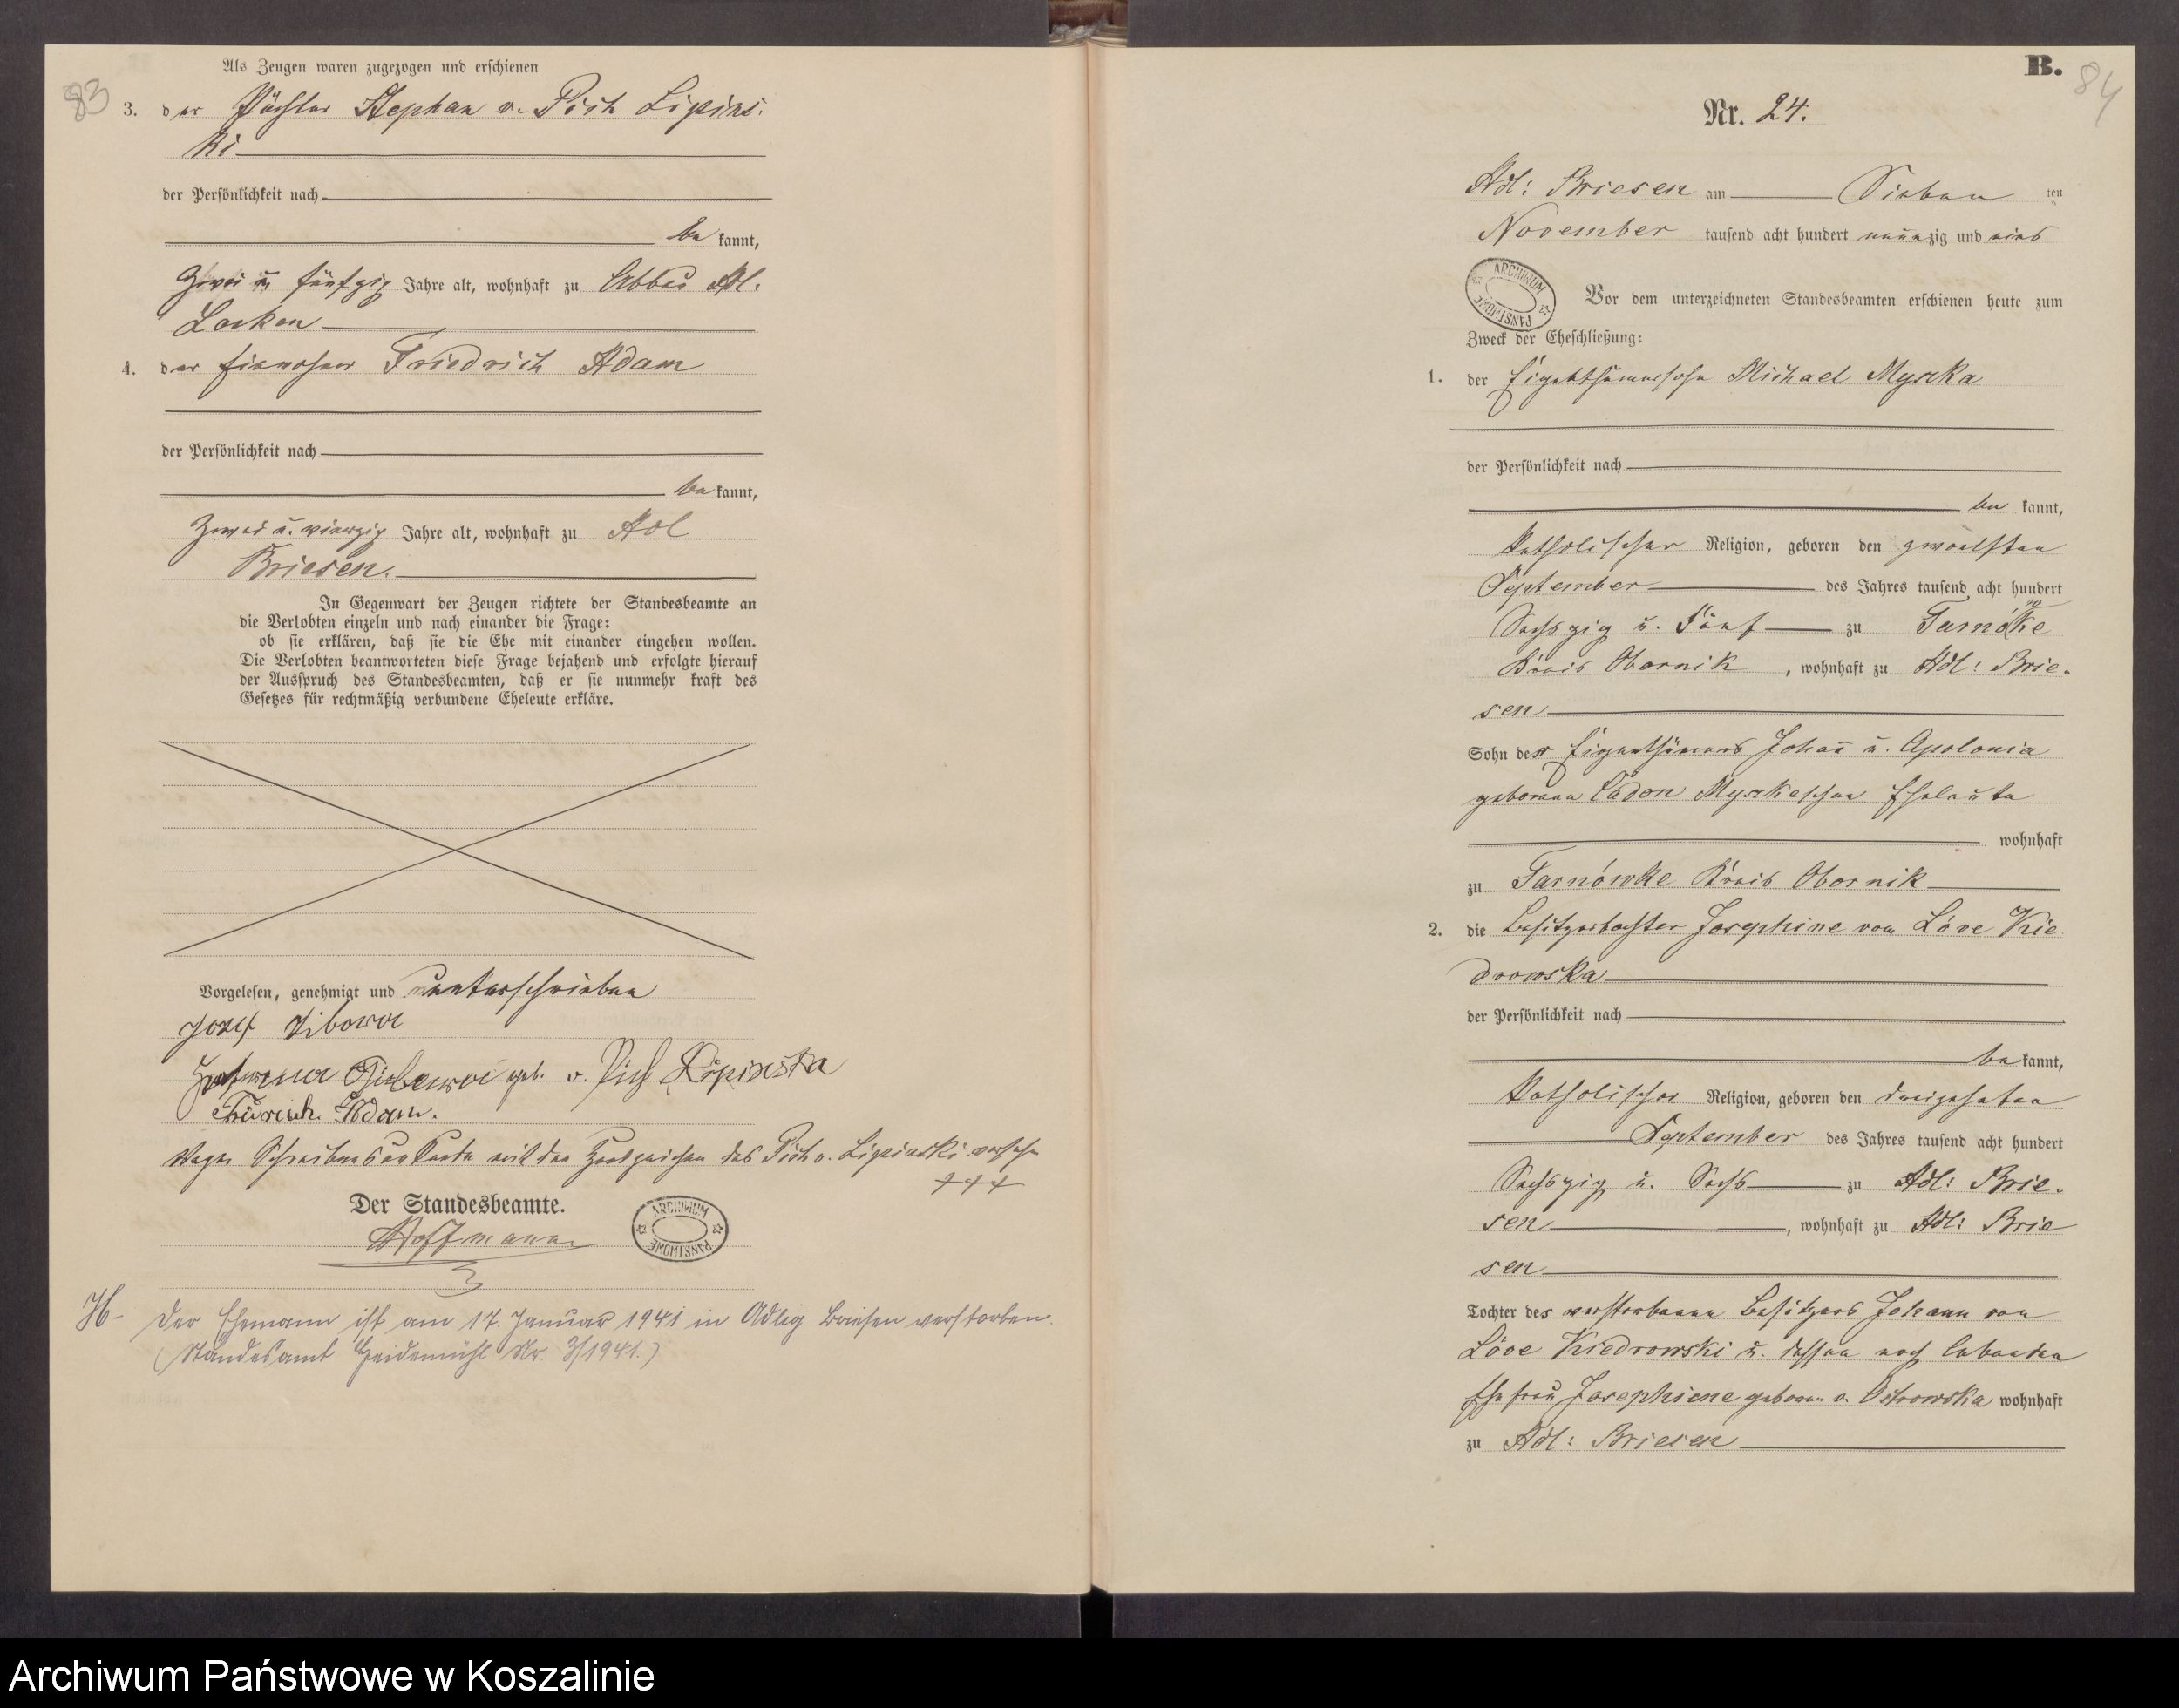 83
Als Zeugen waren zugezogen und erschienen
3. der Pächter Stephan v. Pich Lipins-
ki
der Persönlichkeit nach
be kannt,
Zwei u fünfzig Jahre alt, wohnhaft zu Abbau Adl.
Locken
4. der Einwohner Friedrich Adam
der Persönlichkeit nach
be kannt,
Zwei u. vierzig Jahre alt, wohnhaft zu Adl
Briesen.
In Gegenwart der Zeugen richtete der Standesbeamte an
die Verlobten einzeln und nach einander die Frage:
ob sie erklären, daß sie die Ehe mit einander eingehen wollen.
Die Verlobten beantworteten diese Frage bejahend und erfolgte hierauf
der Ausspruch des Standesbeamten, daß er sie nunmehr kraft des
Gesetzes für rechtmäßig verbundene Eheleute erkläre.
Vorgelesen, genehmigt und unterschrieben
Jozef
geb. v. Pich Lipinska
Fridrich Adam.
Wegen Schreibensunkunde mit den Handzeichen des Pich v. Lipinski versehen
+++
Der Standesbeamte.
Hoffmann
ARCHIWUM PAŃSTWOWE
H- Der Ehemann ist am 17. Januar 1941 in Adlig Briesen verstorben.
(Standesamt Heidemühl Nr. 3/1941.)
B.
84
Nr. 24.
Adl: Briesen am Sieben ten
November tausend acht hundert neunzig und eins
ARCHIWUM PAŃSTWOWE
Vor dem unterzeichneten Standesbeamten erschienen heute zum
Zweck der Eheschließung:
1. der Eigenthümersohn Michael Myszka
der Persönlichkeit nach
be kannt,
katholischer Religion, geboren den zwoelften
September des Jahres tausend acht hundert
Sechszig u. Fünf zu Tarnówke
Kreis Obornik, wohnhaft zu Adl: Brie-
sen
Sohn des Eigenthümers Johan u. Apolonia
geborene Cadon Myszkeschen Eheleute
wohnhaft
zu Tarnówke Kreis Obornik
2. die Besitzertochter Josephine von Löve Kie
drowska
der Persönlichkeit nach
be kannt,
katholischer Religion, geboren den dreizehnten
September des Jahres tausend acht hundert
Sechszig u. Sechs zu Adl: Brie-
sen, wohnhaft zu Adl: Brie
sen
Tochter des verstorbenen Besitzers Johann von
Löve Kiedrowski u. dessen noch lebenden
Ehefrau Josephiene geboren v. Ostrowska wohnhaft
zu Adl: Briesen
Archiwum Państwowe w Koszalinie